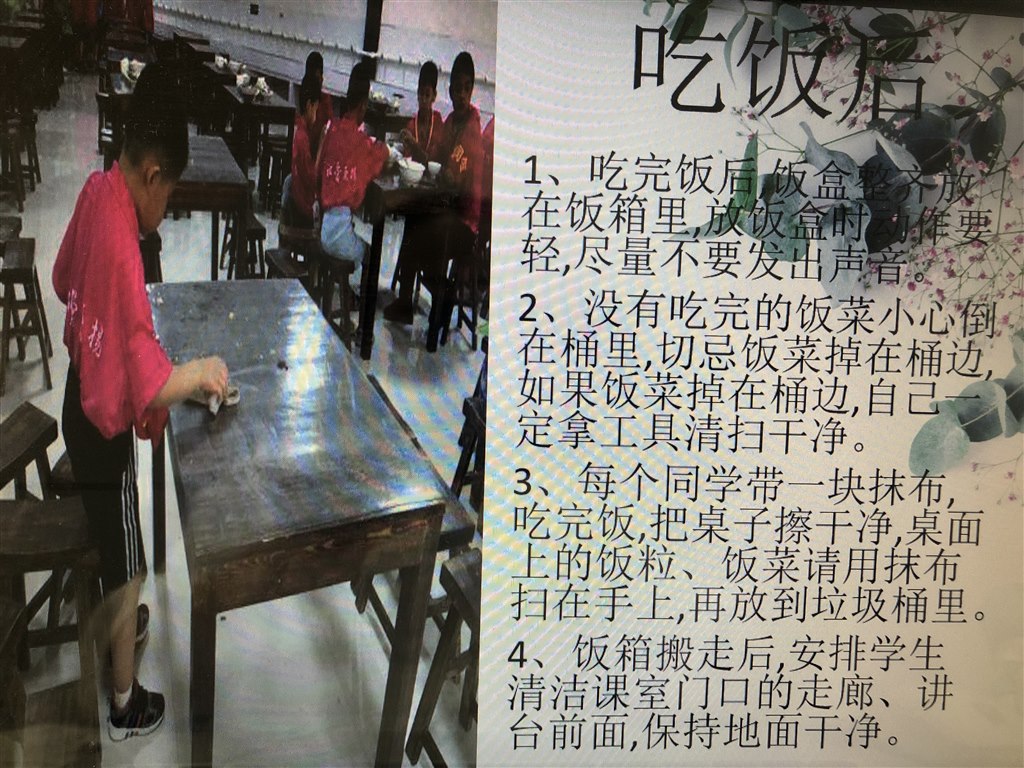 吃饭后
1、吃完饭后,饭盒整齐放
在饭箱里,放饭盒时动作要
轻,尽量不要发出声音。
2、没有吃完的饭菜小心倒
在桶里,切忌饭菜掉在桶边,
如果饭菜掉在桶边,自己一
定拿工具清扫干净。
3、每个同学带一块抹布,
吃完饭,把桌子擦干净,桌面
上的饭粒、饭菜请用抹布
扫在手上,再放到垃圾桶里。
4、饭箱搬走后,安排学生
清洁课室门口的走廊、讲
台前面,保持地面干净。